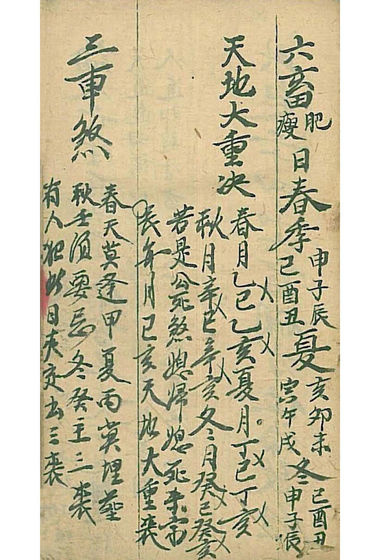 六畜肥瘦日春季申子辰己酉丑夏亥卯未寅午戌冬己酉丑申子辰
天地大重决
春月乙巳乙亥夏月丁巳丁亥
秋月辛巳辛亥冬月癸巳癸亥
若是公死煞媳婦媳死
年月巳亥天地大重喪
三車煞
春天莫逢甲夏丙莫埋葬
秋壬須要忌冬癸主三喪
有人犯此日定出三喪